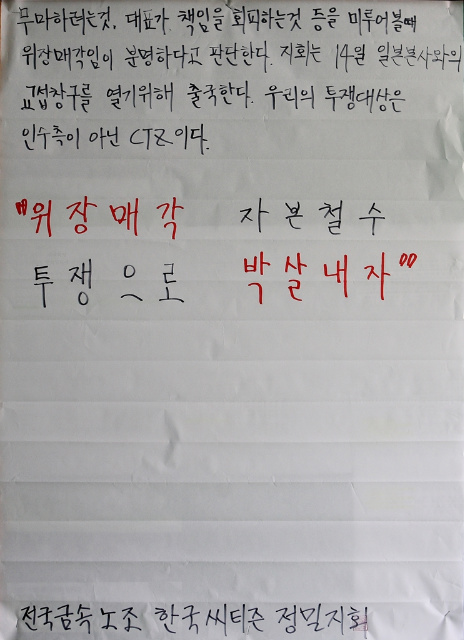 무마하려는것, 대표가 책임을 회피하는것 등을 미투어볼때
위장매각임이 분명하다고 판단한다. 지회는 14일 일본본사와의
교섭창구를 열기위해 출국한다. 우리의 투쟁대상은
인수측이 아닌 CTZ이다.
"위장매각 자본철수
투쟁으로 박살내자"
전국금속노조 한국씨티즌정밀지회